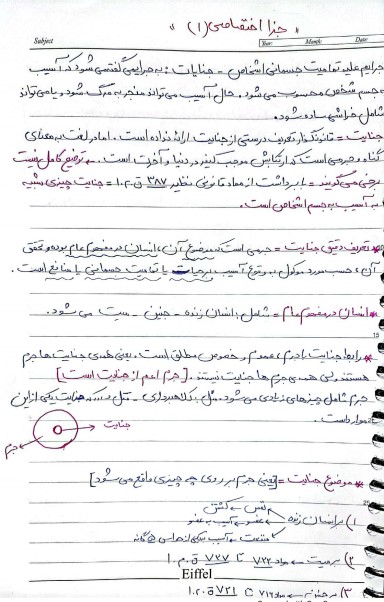 « جزا اختصاصی (۱) »
Subject Year: Month: Date:
جرایم علیه تمامیت جسمانی اشخاص - جنایات : به جرایمی گفته می شود که آسیب
به جسم شخص محسوب می شود. حال آسیب می تواند منجر به مرگ شود و یا می تواند
شامل خراشی ساده شود.
جنایت = قانونگذار تعریف درستی از جنایت ارائه نداده است. اما در لغت به معنای
گناه و جرمی است که ارتکابش موجب کیفر در دنیا و آخرت است. توضیح کامل نیست
برخی می گویند = با برداشت از مواد قانونی نظیر ۳۸۷ ق.م.ا = جنایت چیزی شبیه
به آسیب به جسم اشخاص است.
* تعریف دقیق جنایت = جرمی است که موضوع آن، انسان در مفهوم عام بوده و تحقق
آن، حسب مورد موکول به وقوع آسیب بر حیات یا تمامیت جسمانی یا منافع است.
* انسان در مفهوم عام = شامل انسان زنده - جنین - میت می شود.
* رابطه جنایت با جرم، عموم و خصوص مطلق است. یعنی همه ی جنایت ها جرم
هستند ولی همه ی جرم ها جنایت نیستند. [جرم اعم از جنایت است]
جرم شامل چیزهای زیادی می شود. مثل کلاهبرداری - قتل و ... جنایت یکی از این
موارد است.
جنایت
جرم
* موضوع جنایت = [یعنی جرم بر روی چه چیزی واقع می شود]
نفس ← کشتن
۱) بر انسان زنده عضو ← آسیب به عضو
منفعت ← آسیب به یکی از حواس ۵ گانه
۲) بر میت ← مواد ۷۲۲ تا ۷۲۷ ق.م.ا
Eiffel
۳) بر جنین ← مواد ۷۱۶ تا ۷۲۱ ق.م.ا